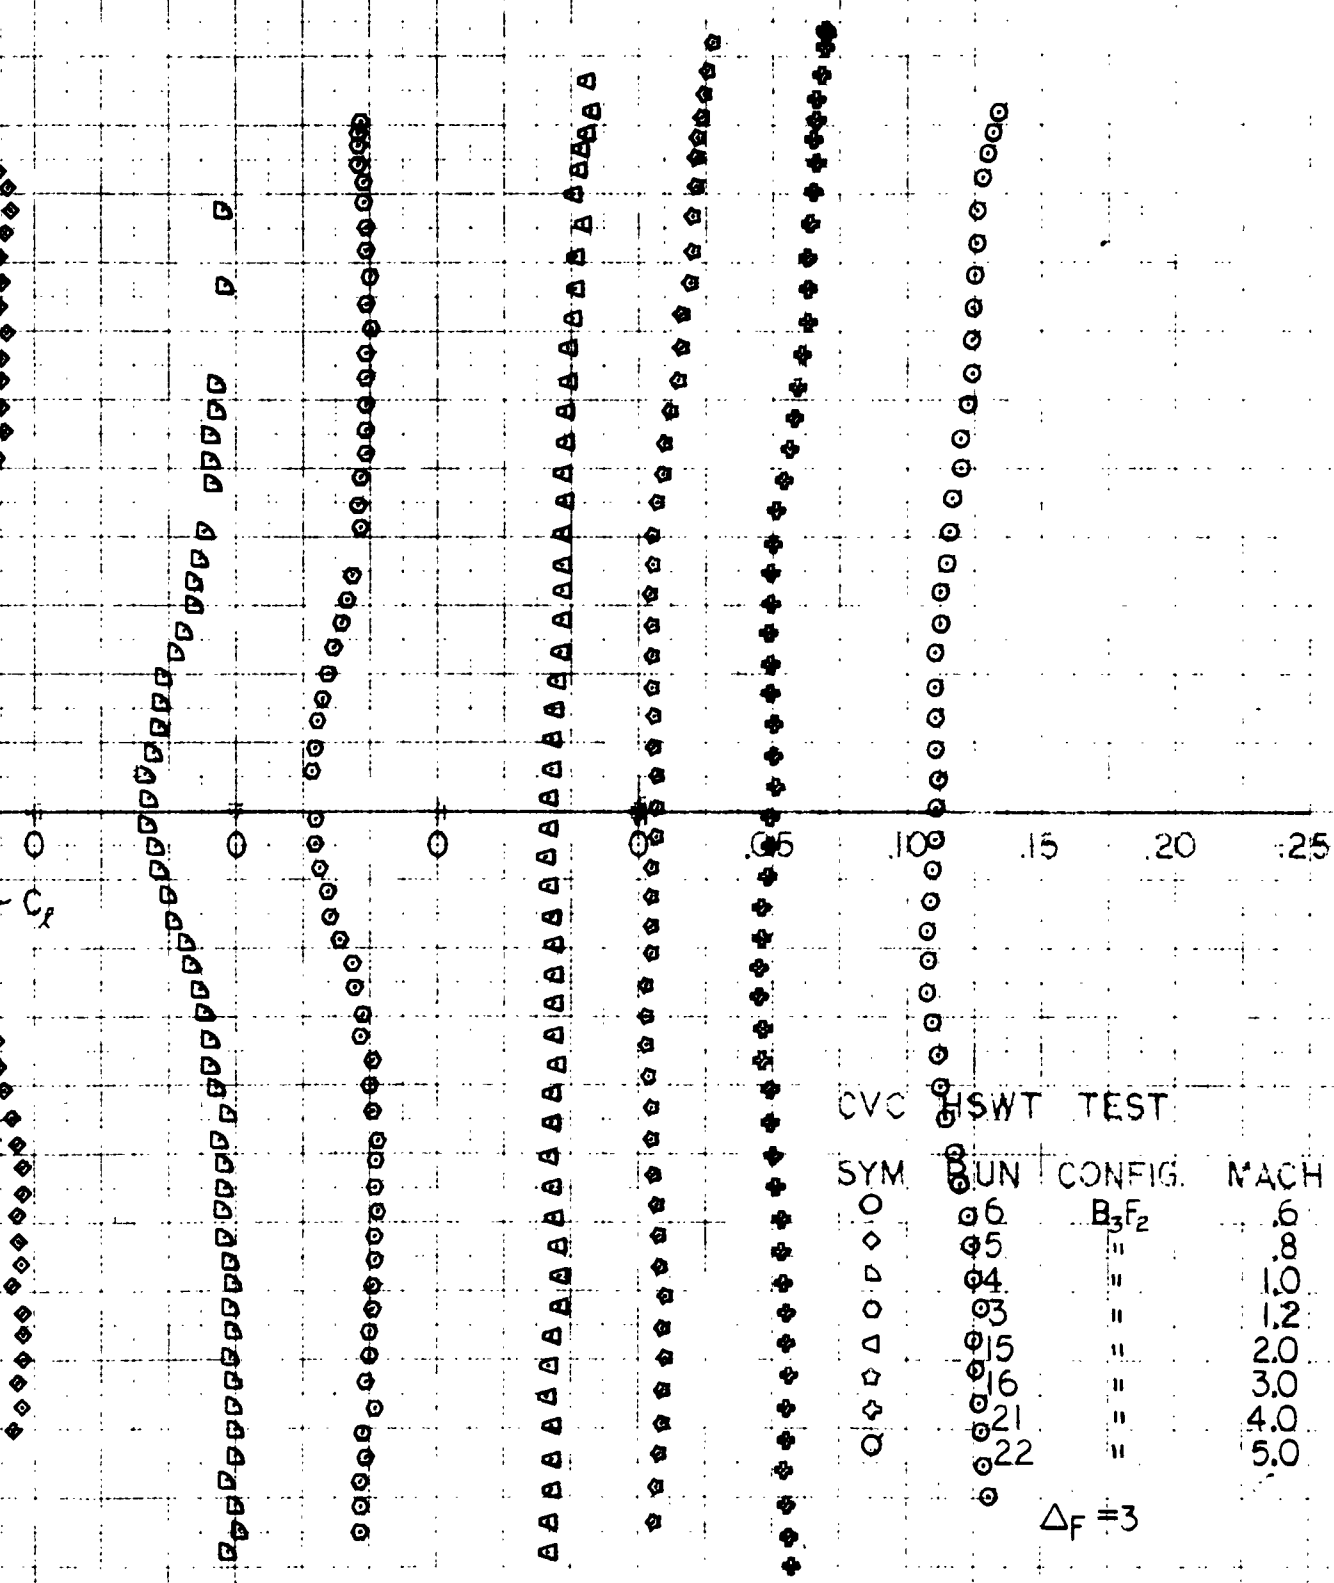 0 0 0 0 .05 .10 .15 .20 .25
- Cℓ
CVC HSWT TEST
SYM RUN CONFIG. MACH
6 B₃F₂ .6
5 " .8
4 " 1.0
3 " 1.2
15 " 2.0
16 " 3.0
21 " 4.0
22 " 5.0
△F = 3